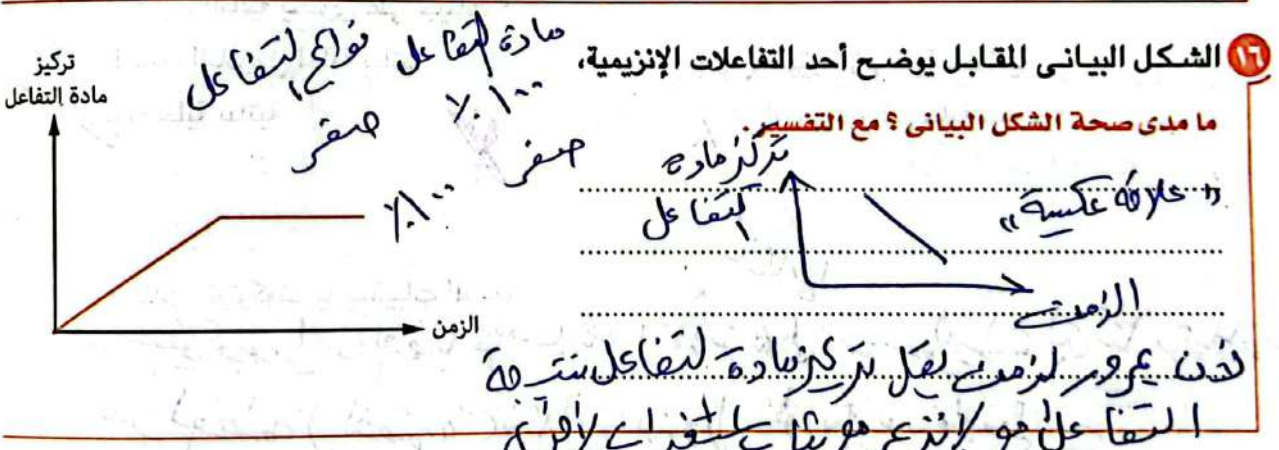 ١٦ الشكل البيانى المقابل يوضح أحد التفاعلات الإنزيمية،
ما مدى صحة الشكل البيانى ؟ مع التفسير.
تركيز
مادة التفاعل
الزمن
مادة التفاعل نواتج التفاعل
١٠٠٪ صفر
صفر ١٠٠٪
"علاقة عكسية"
تركيز مادة
التفاعل
الزمن
بمرور الزمن يقل تركيز مادة التفاعل نتيجة
التفاعل مع